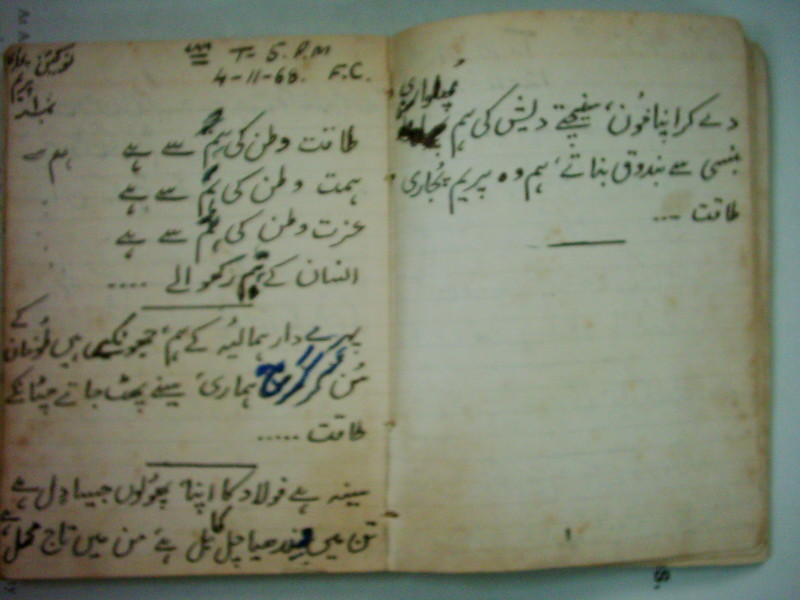 T-5.P.M
4-11-68. F.C.
طاقت وطن کی ہم سے ہے
ہمت وطن کی ہم سے ہے
عزت وطن کی ہم سے ہے
انسان کے ہم رکھوالے ....
پہرے دار ہمالیہ کے ہم، جھونکے ہیں طوفان کے
سُن کر گرج ہماری، سینے پھٹ جاتے چٹان کے
طاقت .....
سینہ ہے فولاد کا اپنا، پھولوں جیسا دل ہے
تن میں وندھیاچل کا بل ہے، من میں تاج محل ہے
دے کر اپنا خون، سینچتے دیش کی ہم پھلواری
بنسی سے بندوق بناتے، ہم وہ پریم پجاری
طاقت ...